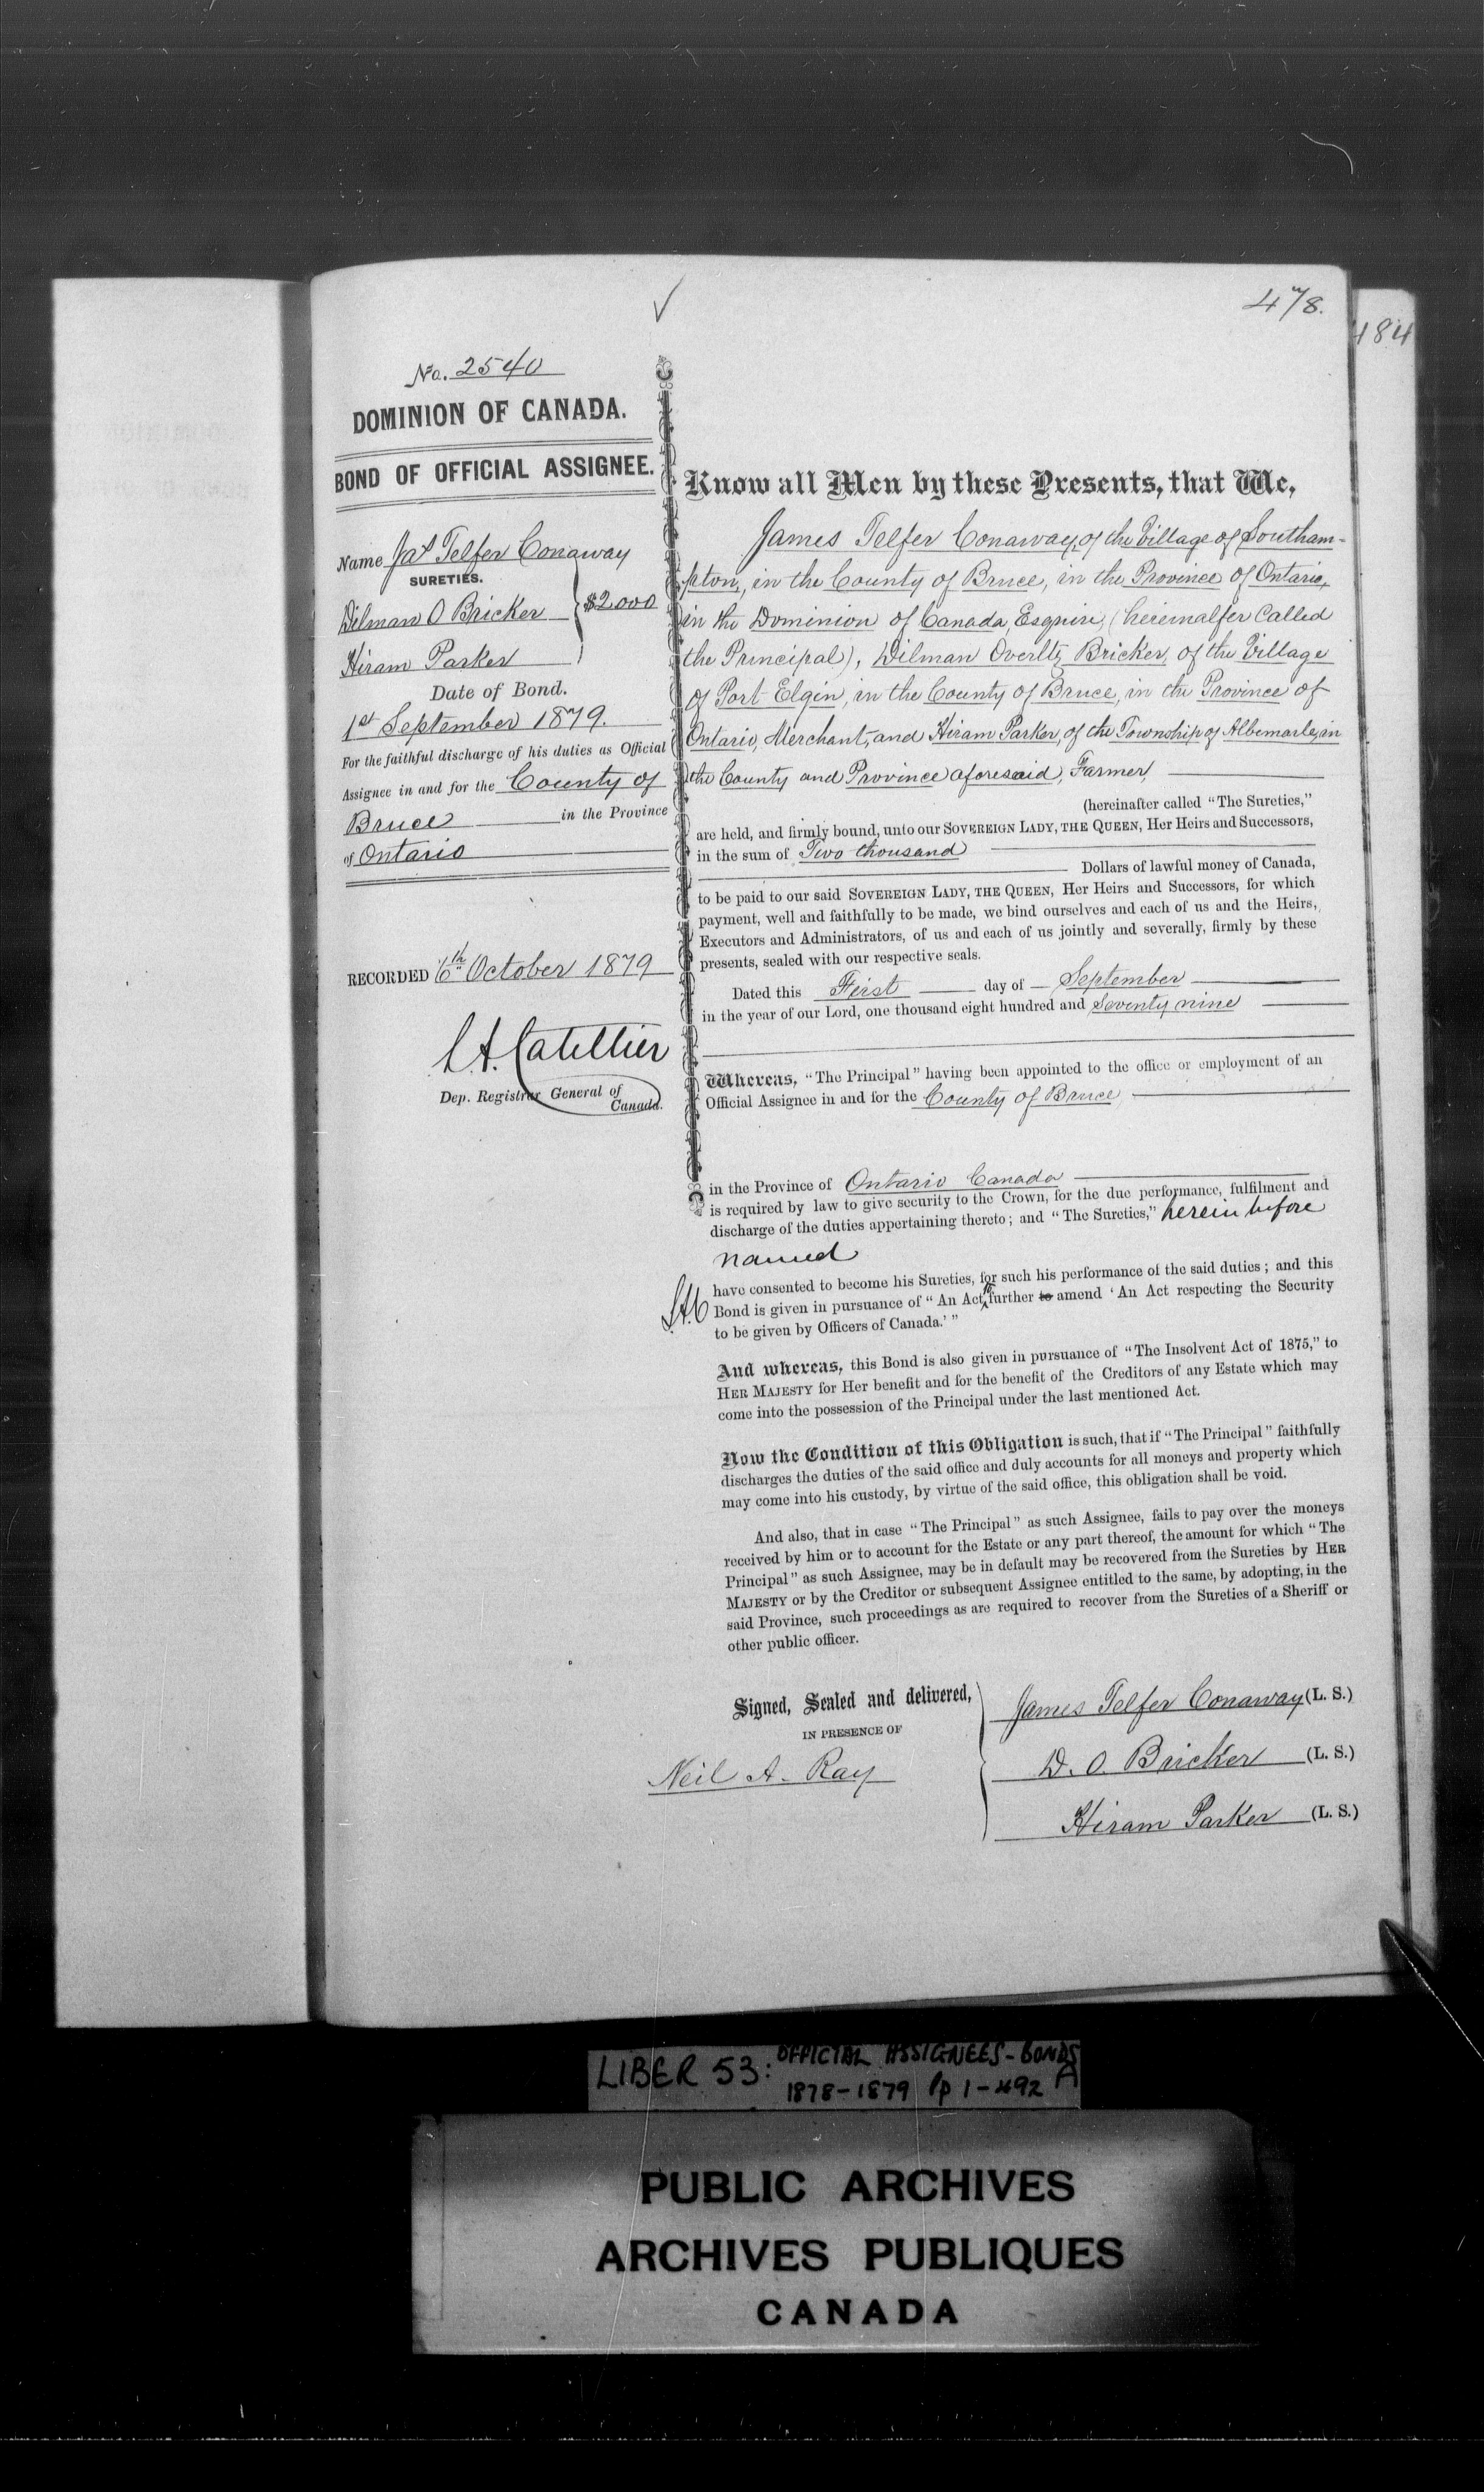 478.
484
No. 2540
DOMINION OF CANADA.
BOND OF OFFICIAL ASSIGNEE.
Name Jas Telfer Conaway
SURETIES.
Dilman O Bricker
$2,000
Hiram Parker
Date of Bond.
1st September 1879.
For the faithful discharge of his duties as Official
Assignee in and for the County of
Bruce in the Province
of Ontario
RECORDED 6th October 1879
L A Catellier
Dep. Registrar General of
Canada.
Know all Men by these Presents, that We,
James Telfer Conaway, of the Village of Southam-
pton, in the County of Bruce, in the Province of Ontario,
in the Dominion of Canada, Esquire, (hereinafter Called
the Principal), Dilman Bricker, of the Village
of Port Elgin, in the County of Bruce, in the Province of
Ontario, Merchant, and Hiram Parker, of the Township of Albemarle, in
the County and Province aforesaid, Farmer,
(hereinafter called "The Sureties,"
are held, and firmly bound, unto our SOVEREIGN LADY, THE QUEEN, Her Heirs and Successors,
in the sum of Two thousand
Dollars of lawful money of Canada,
to be paid to our said SOVEREIGN LADY, THE QUEEN, Her Heirs and Successors, for which
payment, well and faithfully to be made, we bind ourselves and each of us and the Heirs,
Executors and Administrators, of us and each of us jointly and severally, firmly by these
presents, sealed with our respective seals.
Dated this First day of September
in the year of our Lord, one thousand eight hundred and Seventy nine
Whereas, "The Principal" having been appointed to the office or employment of an
Official Assignee in and for the County of Bruce
in the Province of Ontario Canada
is required by law to give security to the Crown, for the due performance, fulfilment and
discharge of the duties appertaining thereto; and "The Sureties," herein before
named
have consented to become his Sureties, for such his performance of the said duties; and this
L.A.C Bond is given in pursuance of "An Act to further to amend 'An Act respecting the Security
to be given by Officers of Canada.'"
And whereas, this Bond is also given in pursuance of "The Insolvent Act of 1875," to
HER MAJESTY for Her benefit and for the benefit of the Creditors of any Estate which may
come into the possession of the Principal under the last mentioned Act.
Now the Condition of this Obligation is such, that if "The Principal" faithfully
discharges the duties of the said office and duly accounts for all moneys and property which
may come into his custody, by virtue of the said office, this obligation shall be void.
And also, that in case "The Principal" as such Assignee, fails to pay over the moneys
received by him or to account for the Estate or any part thereof, the amount for which "The
Principal" as such Assignee, may be in default may be recovered from the Sureties by HER
MAJESTY or by the Creditor or subsequent Assignee entitled to the same, by adopting, in the
said Province, such proceedings as are required to recover from the Sureties of a Sheriff or
other public officer.
Signed, Sealed and delivered,
IN PRESENCE OF
Neil A. Ray
James Telfer Conaway (L. S.)
D. O. Bricker (L. S.)
Hiram Parker (L. S.)
LIBER 53: OFFICIAL ASSIGNEES - BONDS
1878-1879 Pp 1-492 A
PUBLIC ARCHIVES
ARCHIVES PUBLIQUES
CANADA